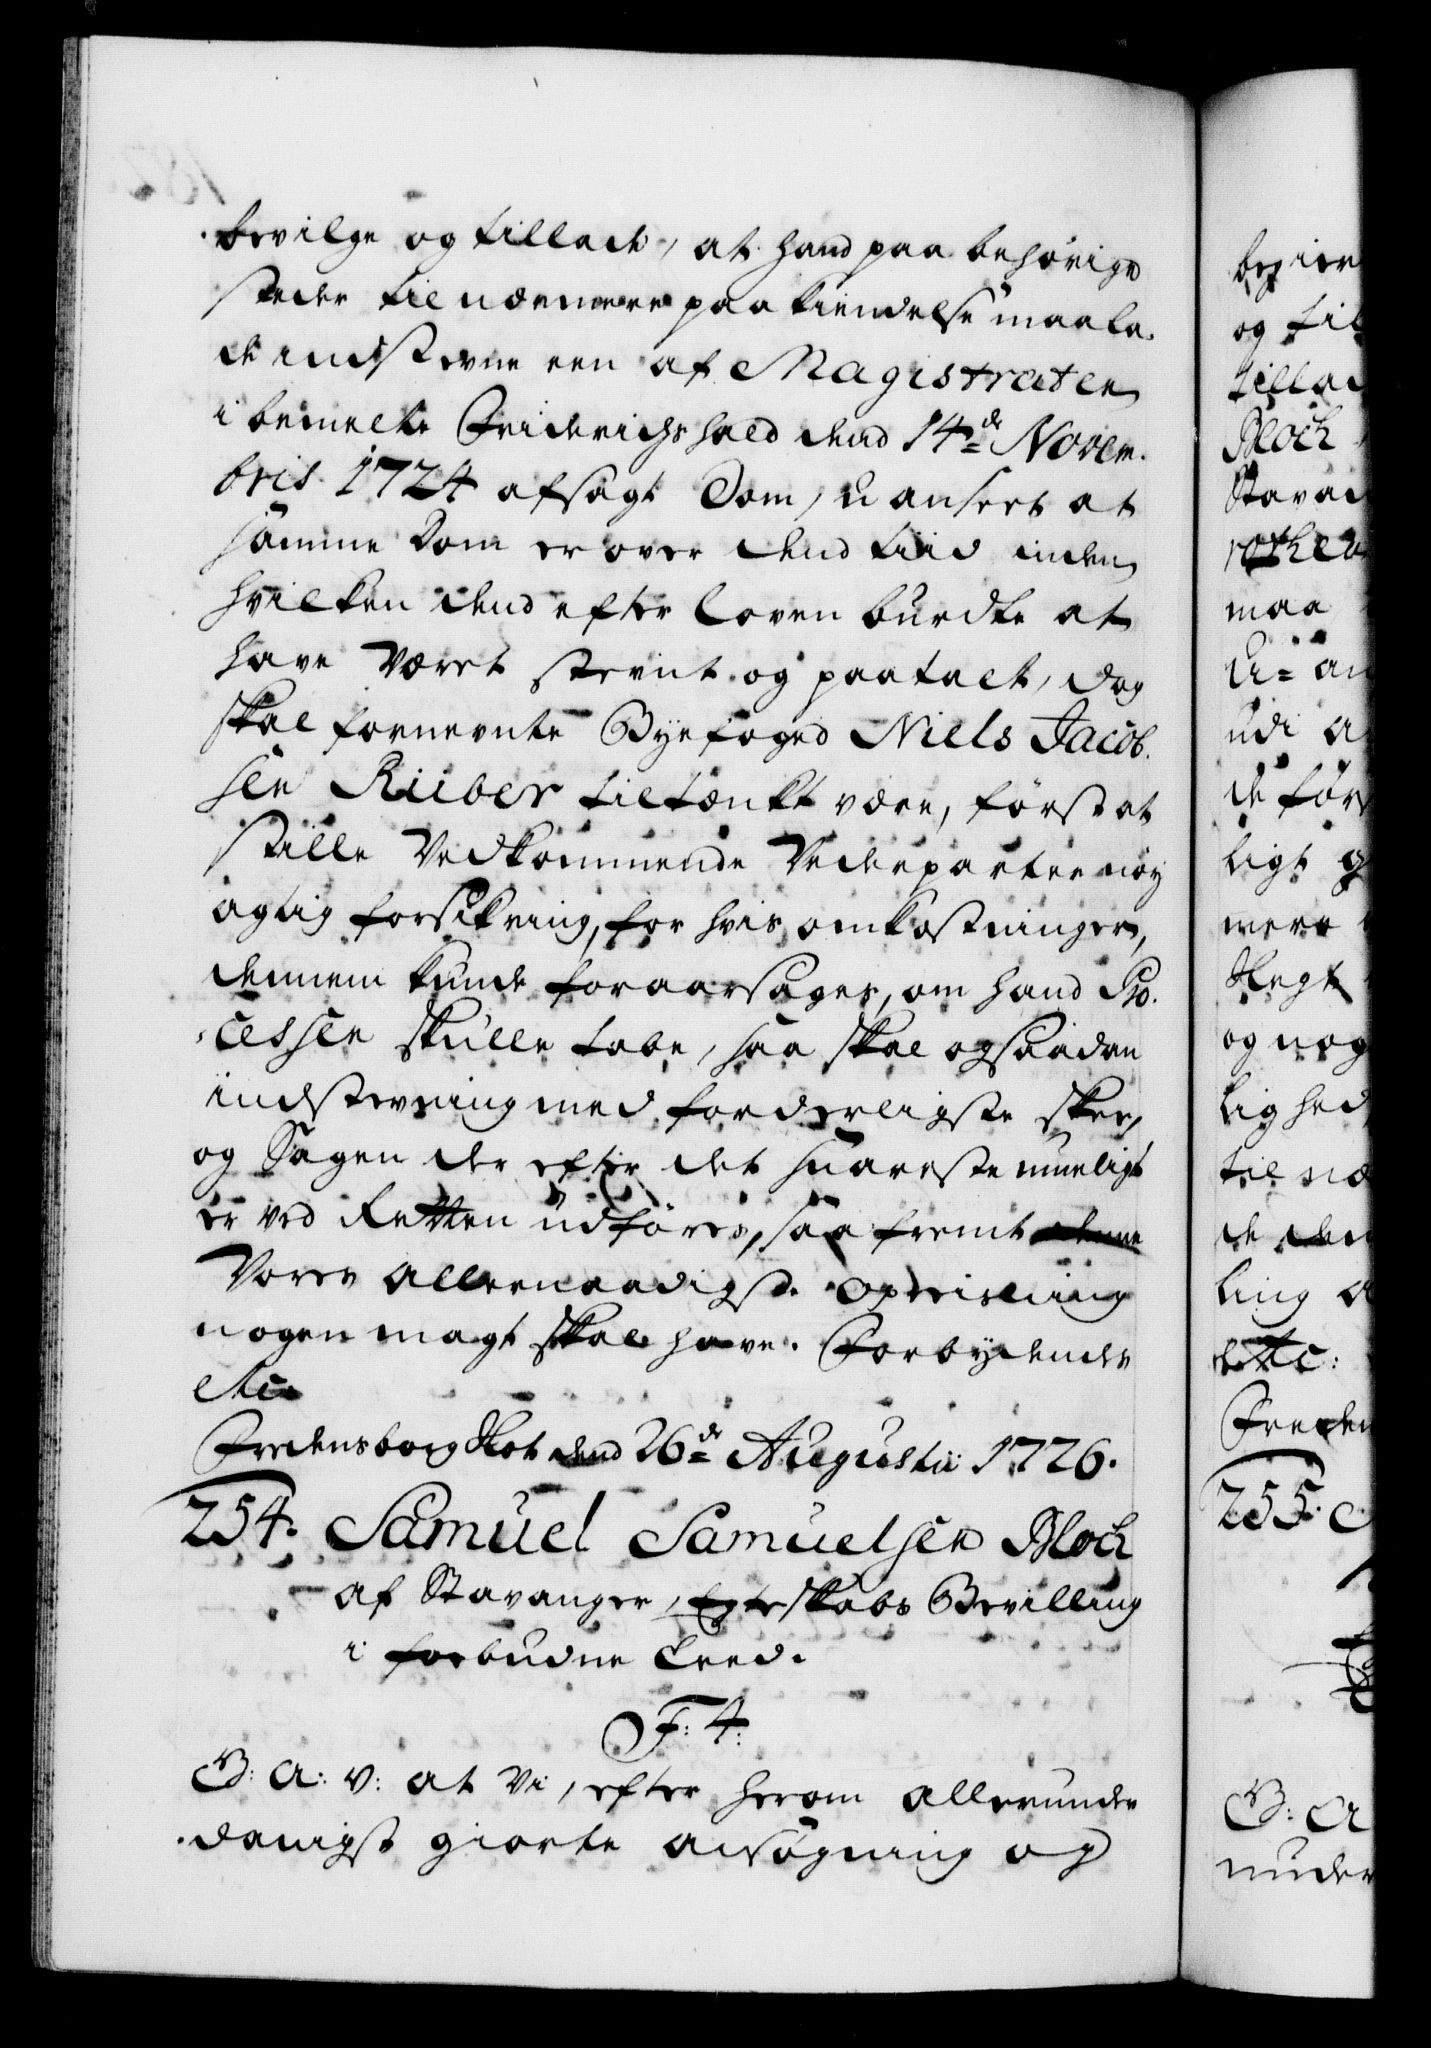 bevilge og tillade, at hand paa behørige
steder til nærmere paakiendelse maa la-
de indstevne een af Magistraten
i bemelte Friderichshald dend 14de Novem-
bris 1724 afsagt Dom, uanseet at
samme Dom er over dend tiid inden
hvilken dend efter Loven burdte at
have været stevnt og paatalt, dog
skal fornevnte Byefoged Niels Jacob-
sen Riiber tiltænkt være, først at
stille Vedkommende Vederparter nøy-
agtig forsikring, for hvis omkostninger,
dennem kunde foraarsages, om hand Pro-
cessen skulle tabe, saa skal og saadan
indstevning med forderligste skee,
og Sagen der efter det snareste mueligt
er ved Retten udføres, saa fremt denne
Vores allernaadigste opreisning
nogen magt skal have. Forbydendes
etc.
Fredensborg Slot dend 26de Augustii 1726.
254. Samuel Samuelsen Bloch
af Stavanger, Egteskabs Bevilling
i forbudne Leed.
F: 4:
G: A: V: at Vi, efter herom allerunder-
danigst giorte ansøgning og
begier
og til
tillad
Bloch
Stavan
rothea
maa
U-an
udi a
de før
ligt
mere
Slegt
og nog
lighed
til næ
de den
ling
etc:
Freden
255.
G: A
under